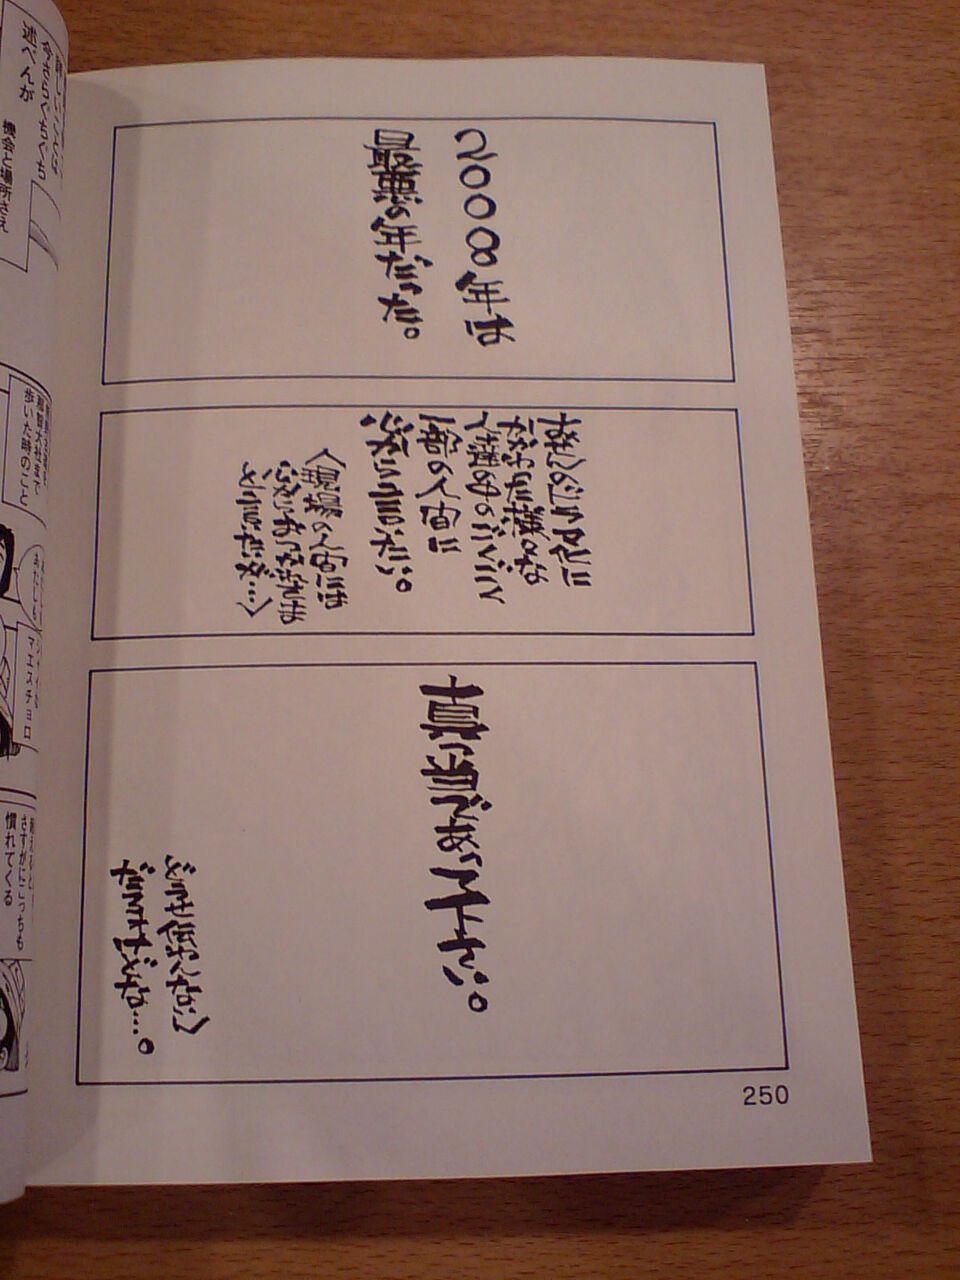 2008年は
最悪の年だった。
おせんのドラマ化に
かかわった様々な
人達の中のごくごく
一部の人間に
心から言いたい。
(現場の人間には
心からおつかれさま
と言いたいが…)
真っ当であって下さい。
どうせ伝わんない
だろうけどな…。
250
今さらぐちぐち
述べんが
機会と場所さえ
歩いた時のこと
マエストロ
さすがにこっちも
慣れてくる